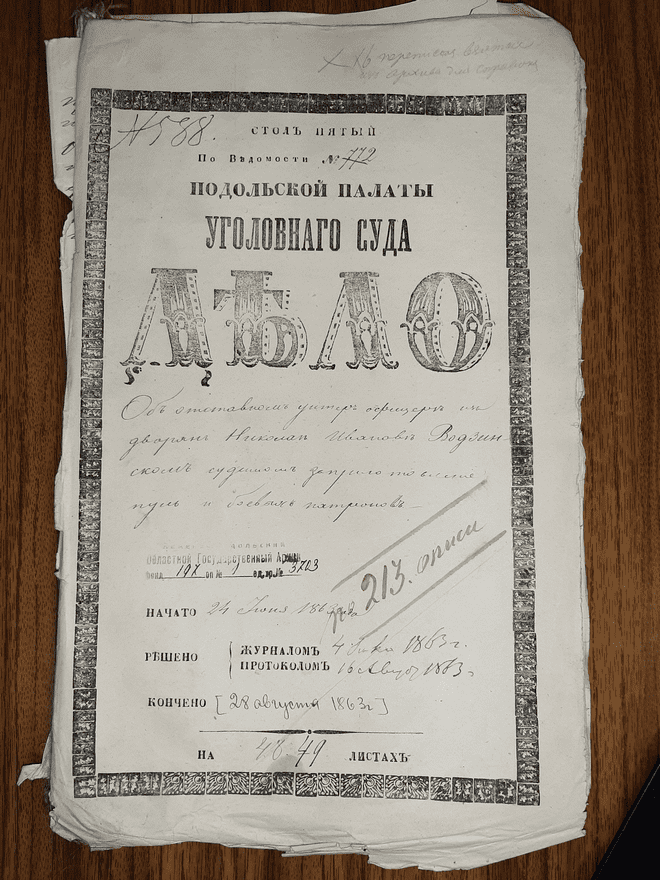 Къ переписки взятых
из архива для справокъ
№ 588.
СТОЛЪ ПЯТЫЙ
По Вѣдомости № 772
ПОДОЛЬСКОЙ ПАЛАТЫ
УГОЛОВНАГО СУДА
ДѢЛО
Объ отставномъ унтеръ офицерѣ изъ
дворянъ Николаѣ Ивановѣ Водзин-
скомъ судимомъ за приготовленіе
пуль и боевыхъ патроновъ
Областной Государственный Архив
фонд 197 оп № 1 ед. хр. № 3703
213. описи
НАЧАТО 24 Іюня 1863 года
РѢШЕНО
ЖУРНАЛОМЪ 4 1863 г.
ПРОТОКОЛОМЪ 16 Август 1863
КОНЧЕНО [28 августа 1863 г]
НА 48 49 ЛИСТАХЪ